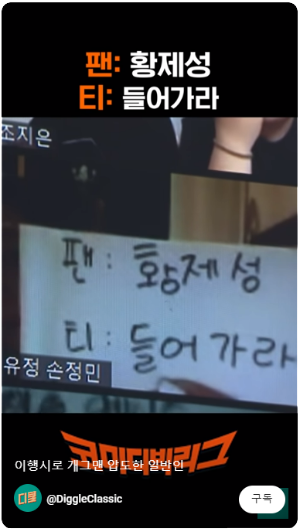 팬: 황제성
티: 들어가라
조지은
팬 : 황제성
티 : 들어가라
유정 손정민
코미디빅리그
이행시로 개그맨 압도한 일반인
디글
@DiggleClassic
구독